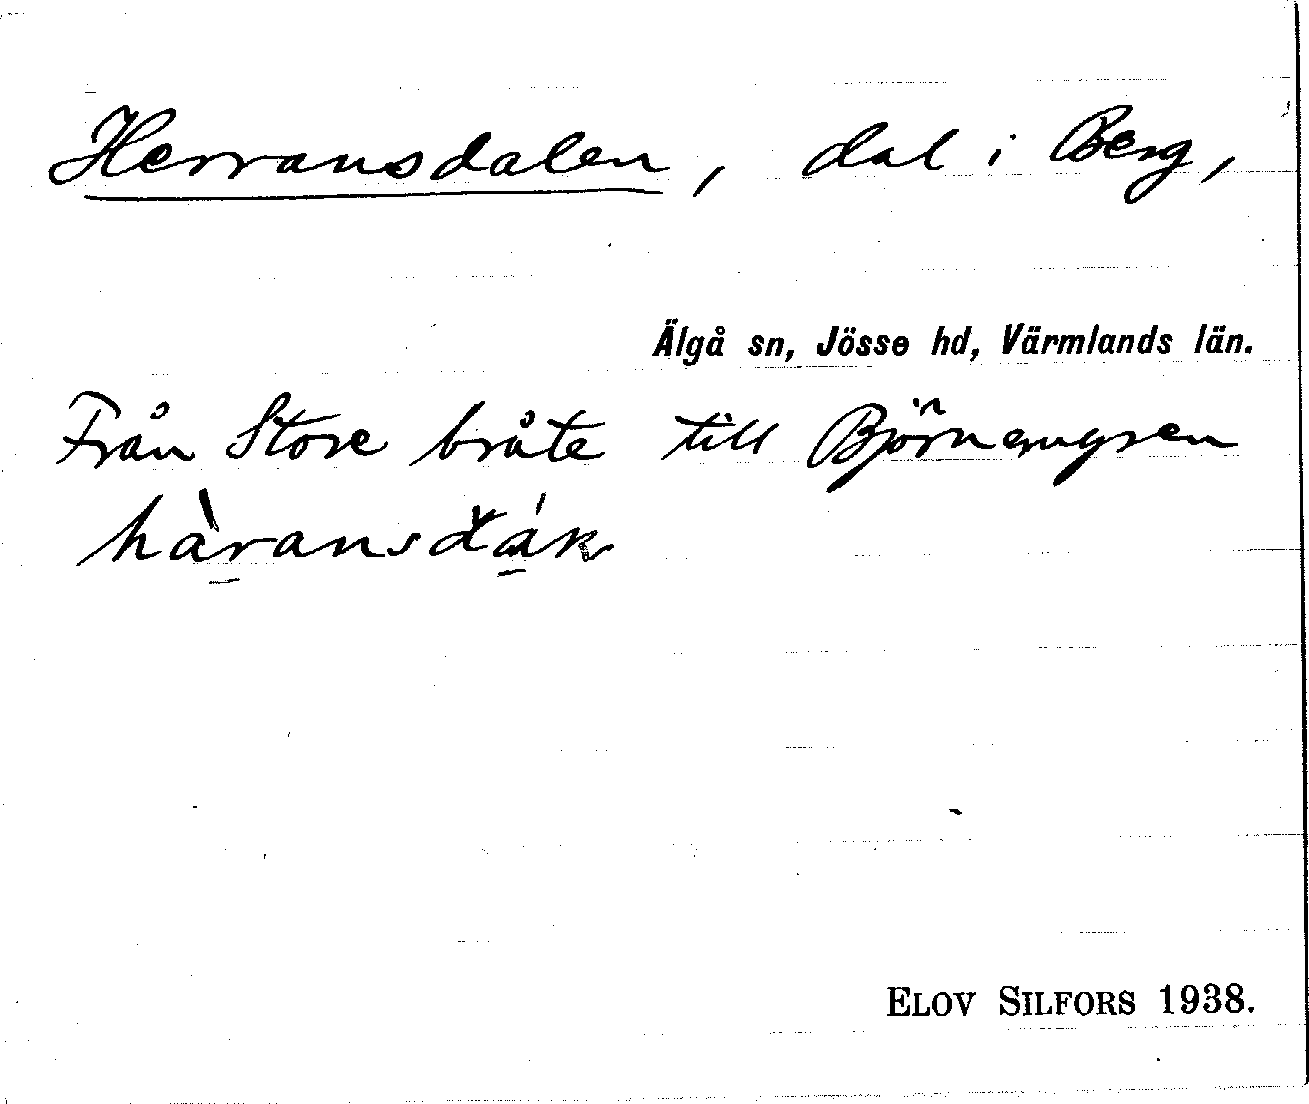 Herransdalen, dal i Berg,
Älgå sn, Jösse hd, Värmlands län.
Från Store bråte till Björnamyren
ELOV SILFORS 1938.